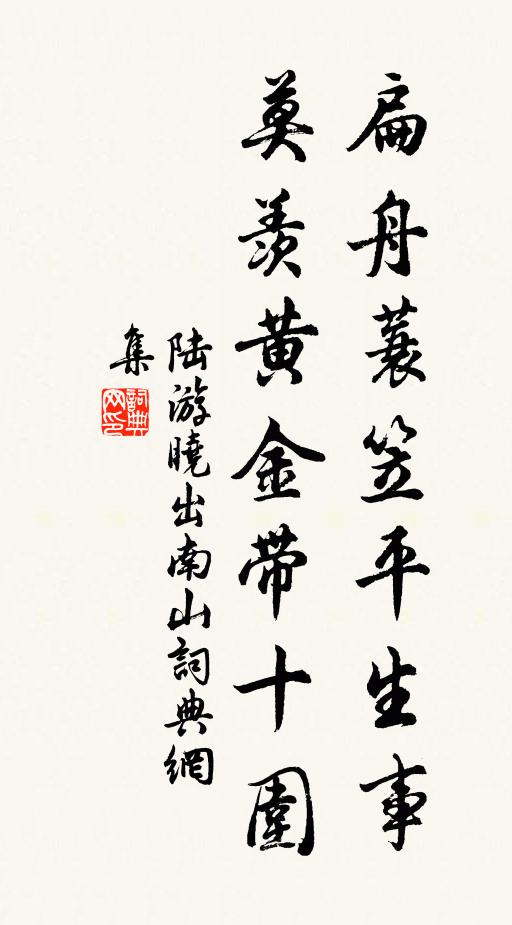 扁舟蓑笠平生事
莫羡黄金带十圍
陆游曉出南山詞典網
集
詞典网印